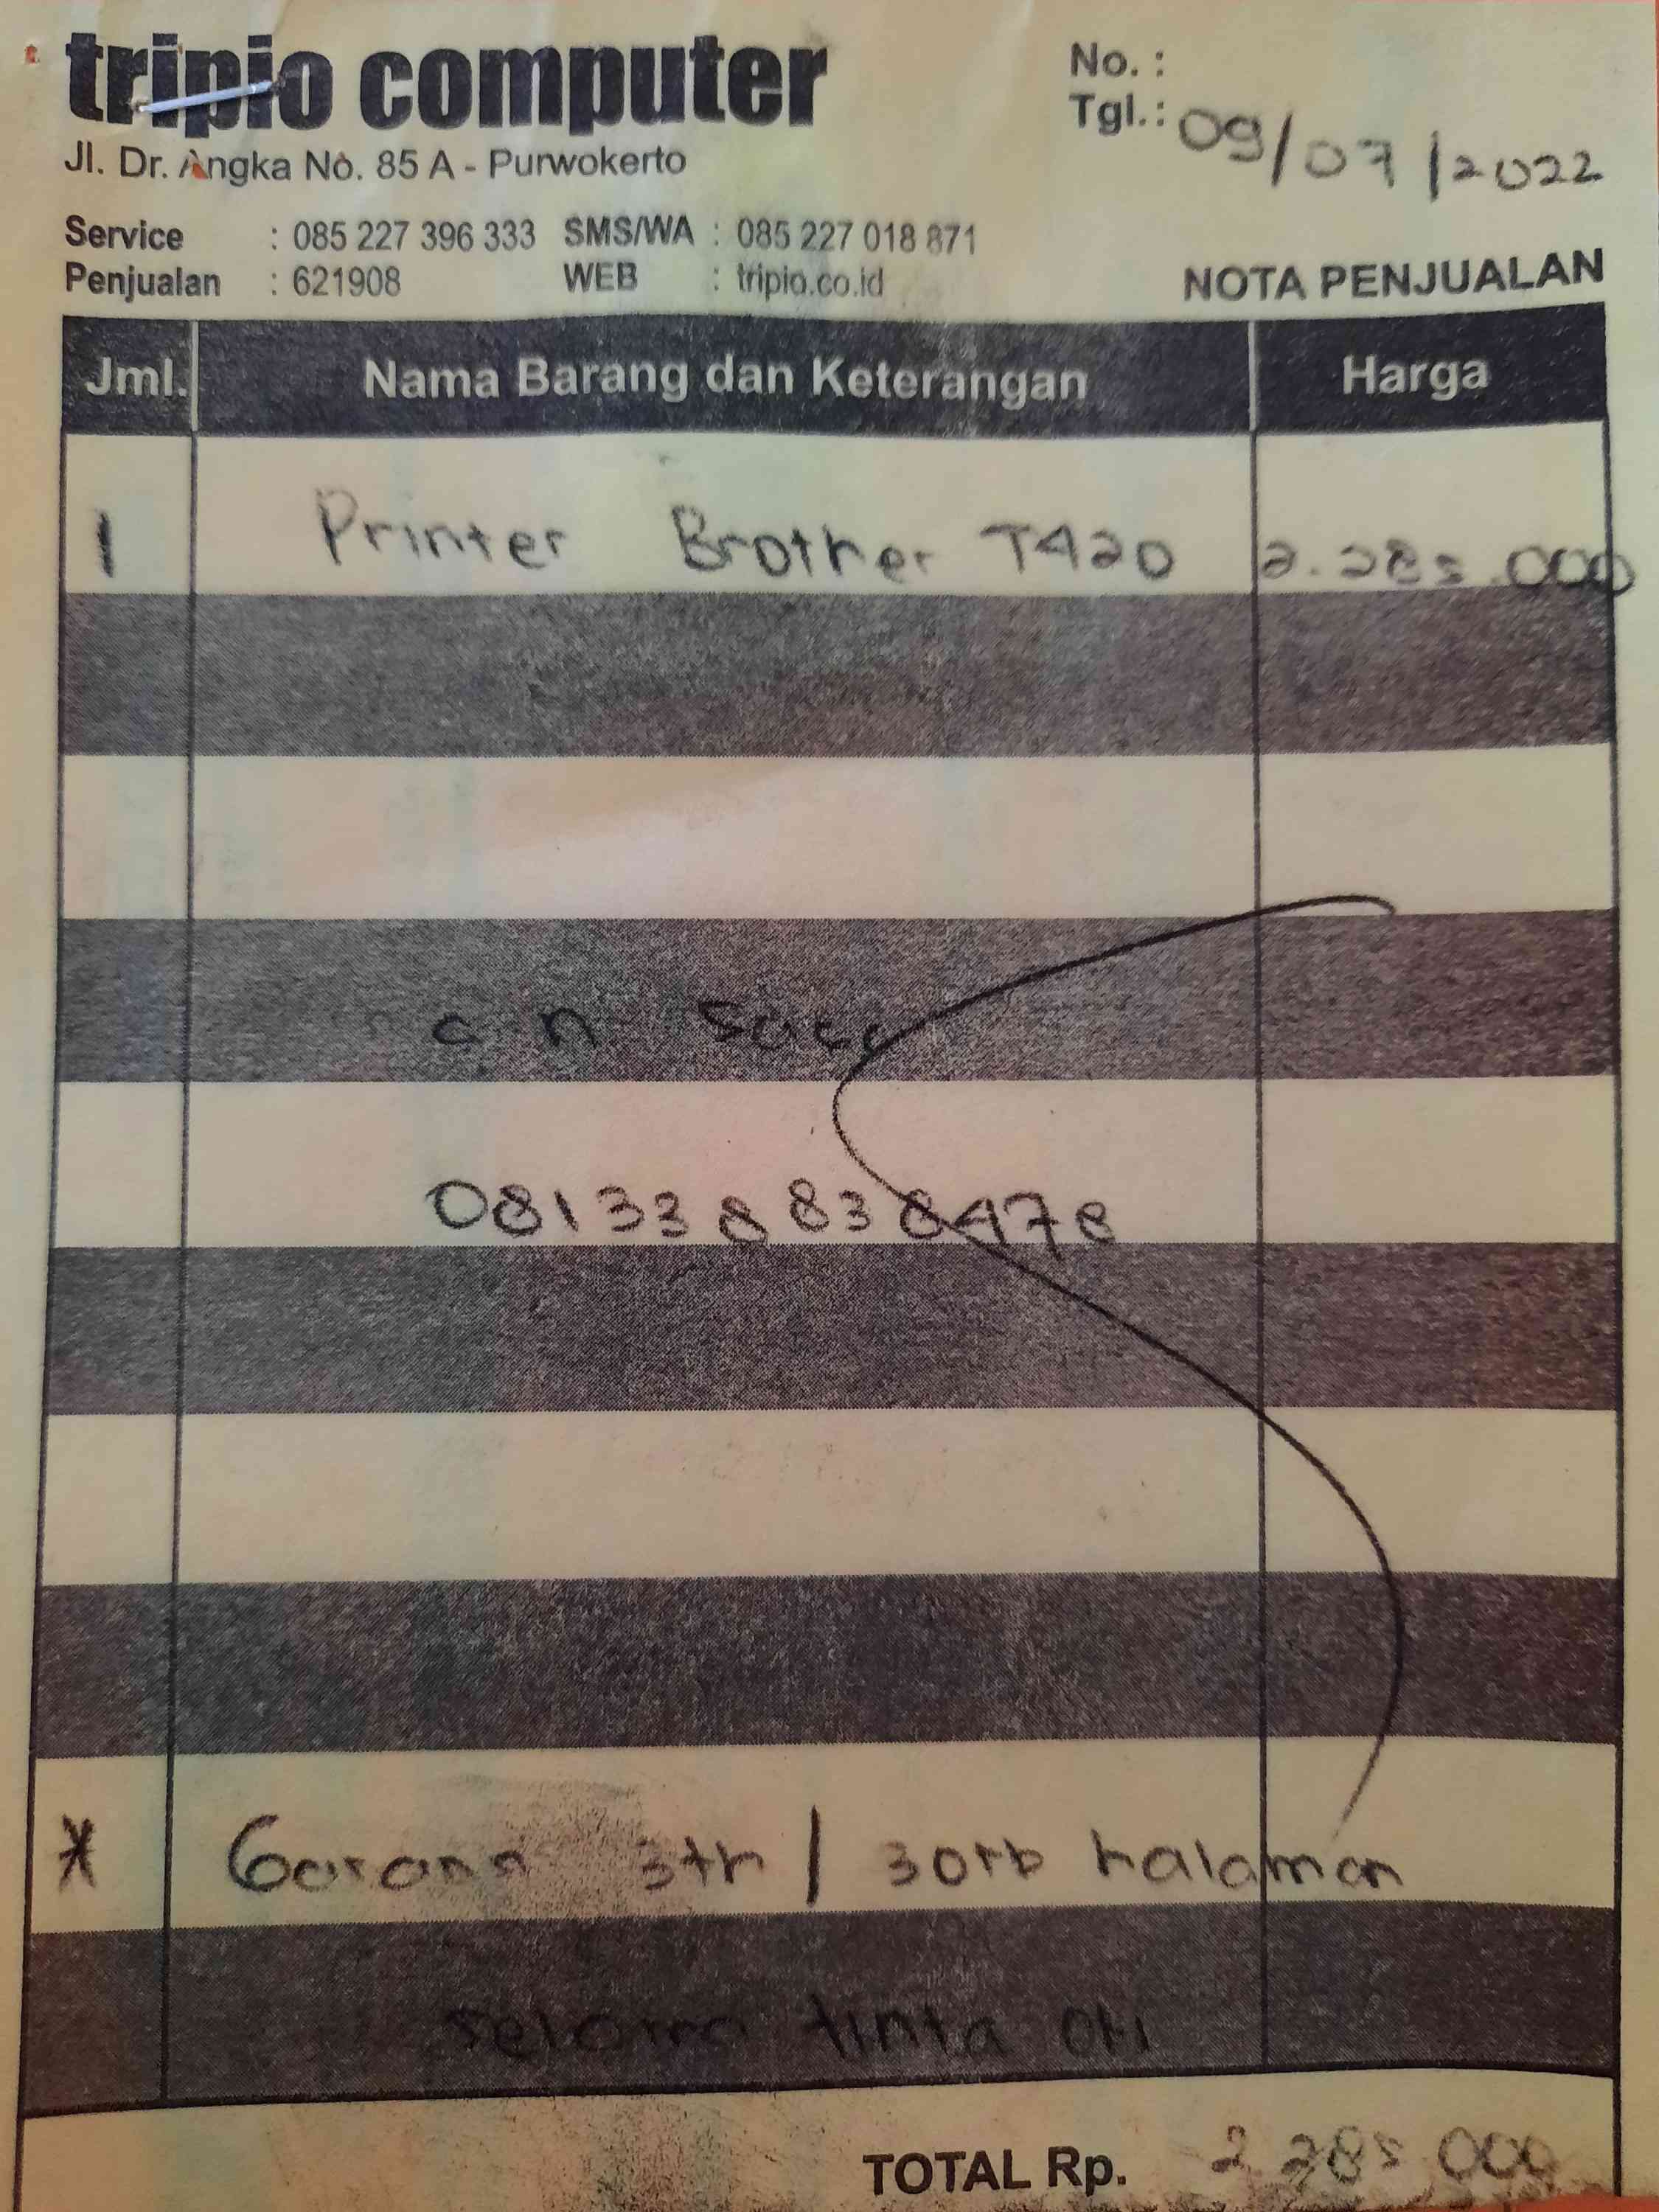 tripio computer
Jl. Dr. Angka No. 85 A - Purwokerto
No. :
Tgl. : 09/07/2022
Service : 085 227 396 333 SMS/WA : 085 227 018 871
Penjualan : 621908 WEB : tripio.co.id
NOTA PENJUALAN
Jml. Nama Barang dan Keterangan Harga
1 Printer Brother T420 2.285.000
a n
081338838478
* Garansi 3th / 30rb halaman
selama tinta ori
TOTAL Rp. 2 285 000